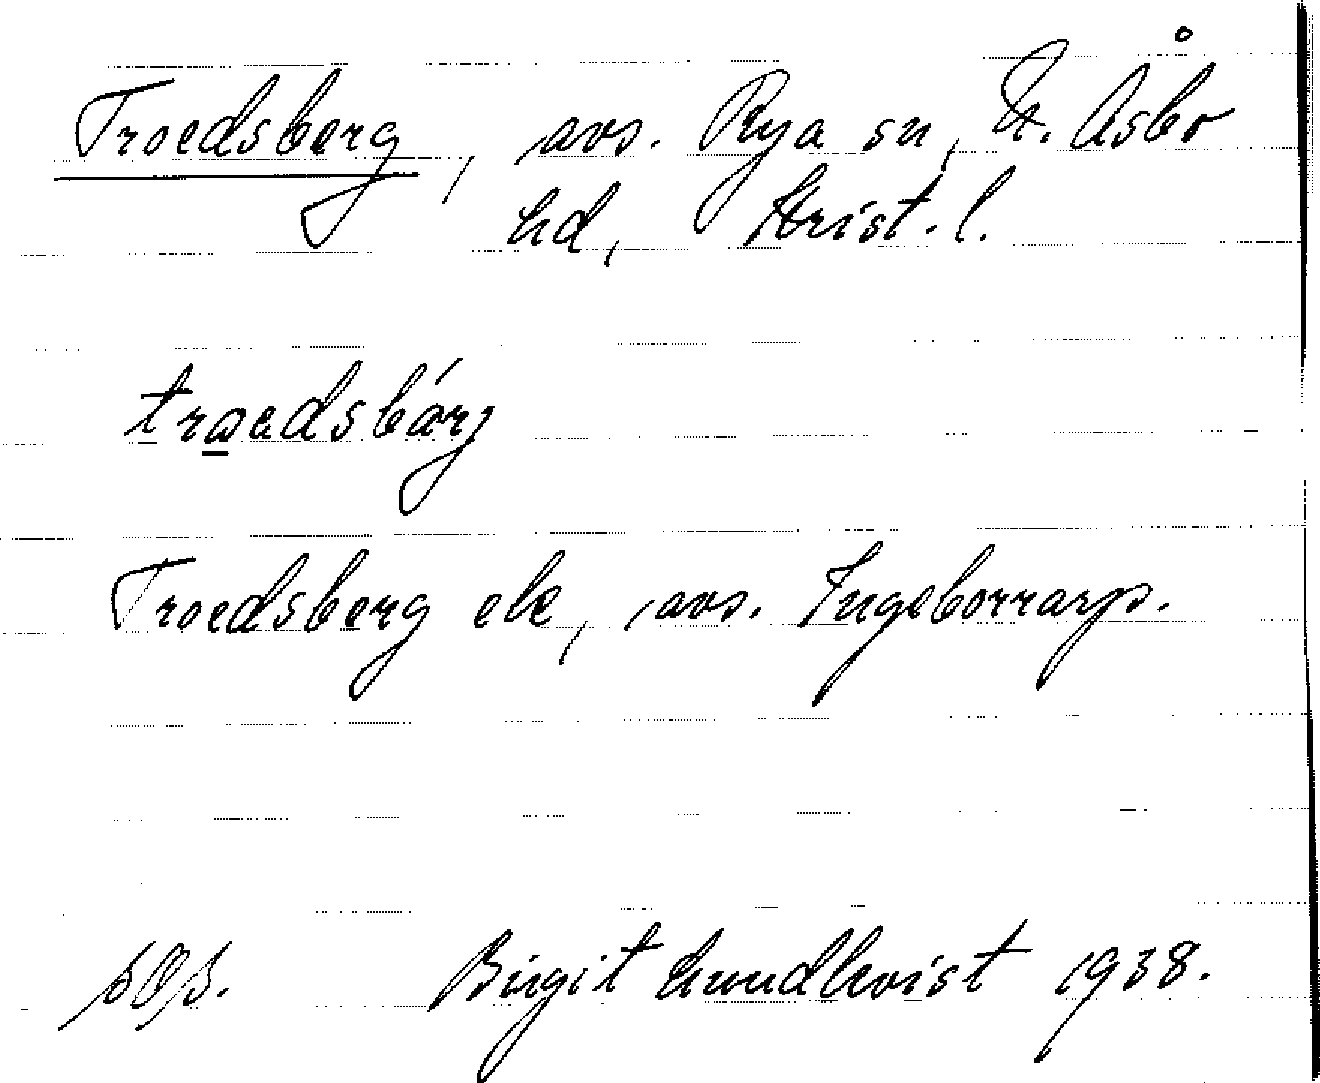 Troedsberg, avs. Rya sn, N. Åsbo
hd, Krist. l.
troedsbärj
Troedsberg ele, avs. Ingeborrarp.
sås.  Birgit Lundkvist 1938.